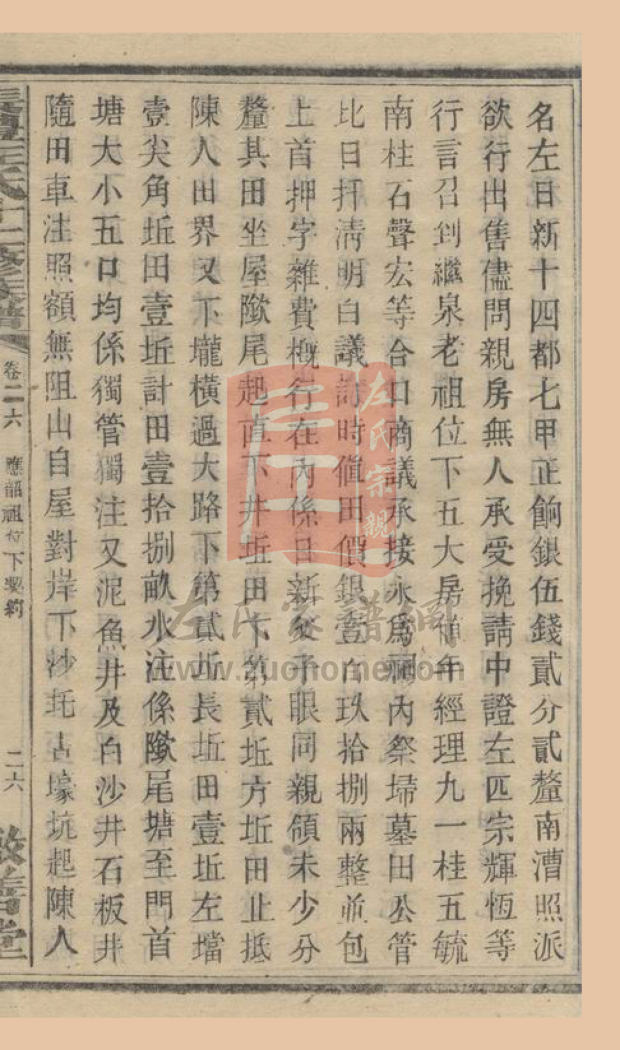 名左日新十四都七甲正餉銀伍錢貳分貳釐南漕照派
欲行出售儘問親房無人承受挽請中證左匹宗輝恆等
行言召到繼泉老祖位下五大房值年經理九一桂五毓
南柱石聲宏等合口商議承接永爲祠內祭埽墓田公管
比日扦清明白議訂時值田價銀壹百玖拾捌兩整並包
上首押字雜費概行在內係日新父子眼同親領未少分
釐其田坐屋隙尾起直下井坵田下第貳坵方坵田止抵
陳人田界又下壠橫過大路下第貳坵長坵田壹坵左壋
壹尖角坵田壹坵計田壹拾捌畝水注係隙尾塘至門首
塘大小五口均係獨管獨注又泥魚井及白沙井石板井
隨田車注照額無阻山自屋對岸下沙圫古壕坑起陳人
左氏十二修族譜
卷二六
應韶祖位下要契
二六
敬善堂
左氏宗親
左氏家譜網
www.zuohome.com